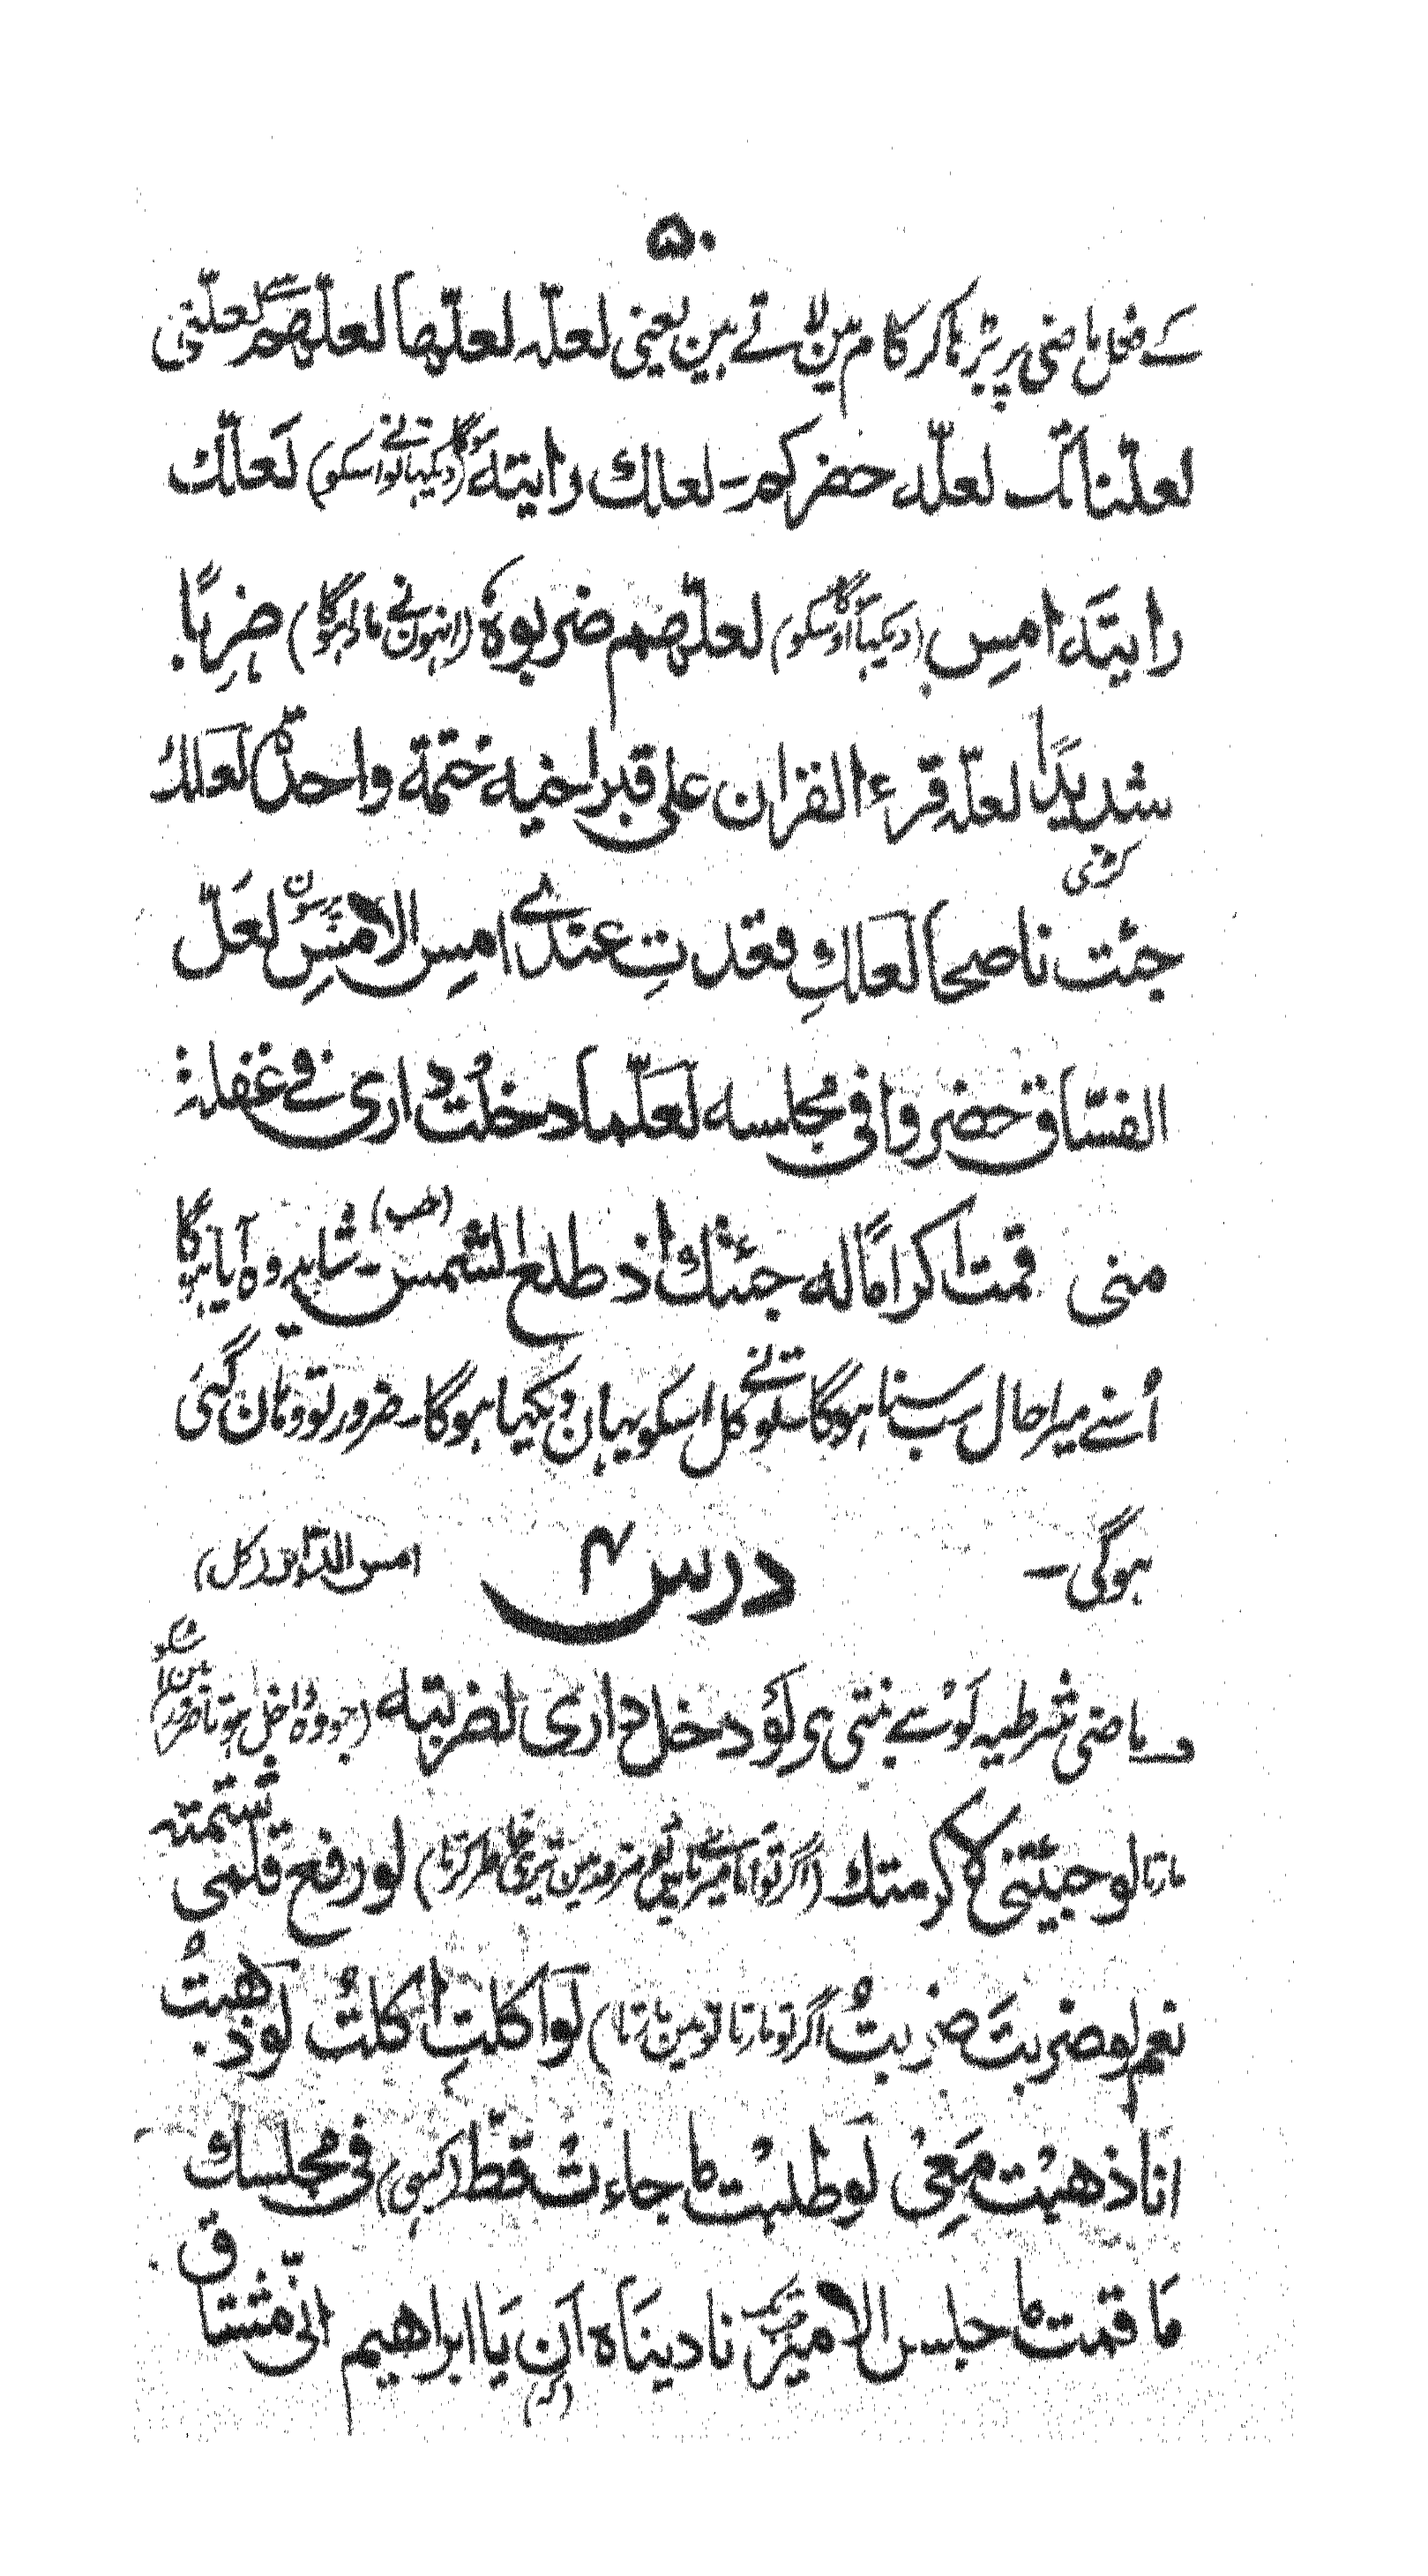 ۵۰
کے فعل ماضی پر بڑہا کر کام مین لاتے ہین یعنی لعلہ لعلّھا لعلّھم لعلّنی
لعلّنا لعلّہ حضرکم ۔ لعلك رایتهٗ (دیکہا تونے اسکو) لَعَلّك
رایتَہ امسِ (دیکہا اوسکو) لعلّھم ضربوہ (انہون نے مارا ہوگا) ضربًا
شدیدًا لعلّہ قرءالقران علی قبر اخیہ ختمة واحدة لَعَلك
کڑی
جئت ناصحا لعلكِ وقعدتِ عندے امسِ الامسِ پرسون لَعَلّ
الفسّاق حضروا فی مجلسہ لَعَلّما دخلتُ داری فی غفلة
منی قمت اکرامًا لہ جئتك اذ طلع الشمس ۔ (جب) شاید وہ آیا ہوگا
اُسنے میرا حال سب سنا ہوگا تونے کل اسکو یہان دیکہا ہوگا ۔ ضرور تو وہان گئی
ہوگی ۔
درس ۴
امس الدابر (کل)
و ماضی شرطیہ لَوْ سے بنتی ہی لَوْ دخل داری لضربتہ (جو وہ داخل ہوتا ضرور مین اسکو
مارتا لو جئتنی لاکرمتك (اگر تو آتا میرے پاس تو ضرور مین تیری خاطر کرتا) لو رفع قلمی شتمتہ
نعم لو ضربتَ ضربتُ اگر تو مارتا تو مین مارتا) لَو اکلتِ اکلتُ لو ذھبتُ
انا ذھبْت مَعِیْ لَو طلبْت ما جاءتْ قطّ (کبہی) فی مجلسك
مَا قمت ما جلس الامیر نادینَاہ اَن (کہ) یَا ابراھیم انّی مشتاق